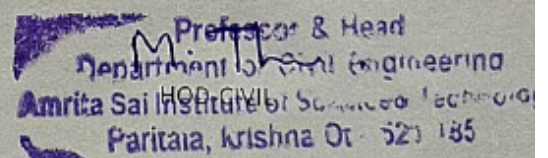 Professor & Head
Department of Civil Engineering
Amrita Sai Institute of Science
HOD-CIVIL
Paritala, Krishna Dt - 521 185